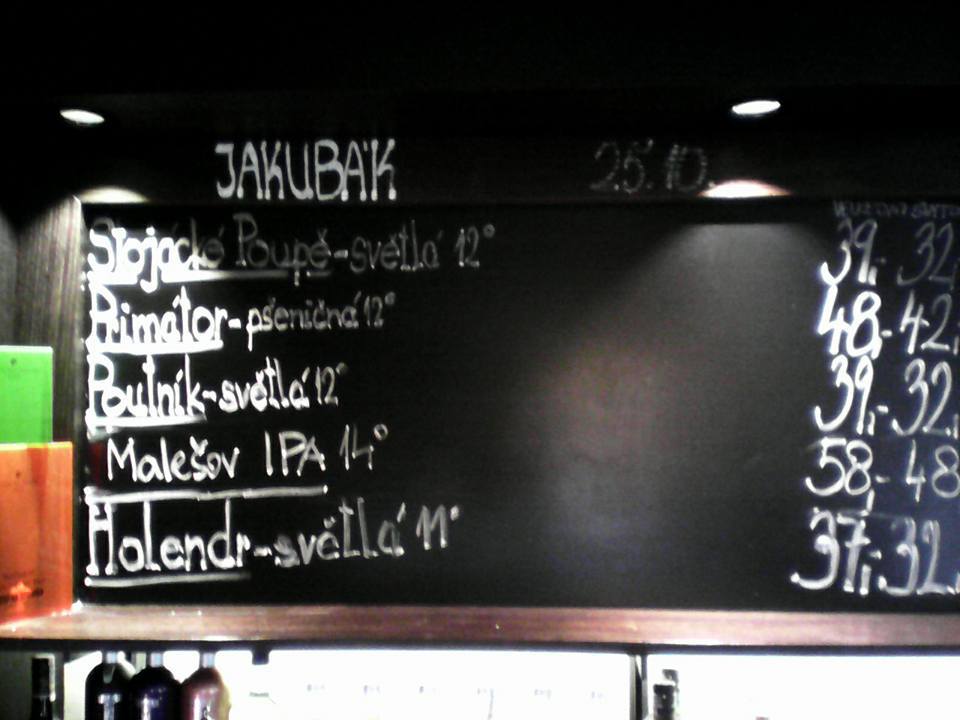 JAKUBÁK 25.10.
Stojácké Poupě-světlá 12° 39,- 32
Primátor-pšeničná 12° 48,- 42,
Poutník-světlá 12° 39,- 32,
Malešov IPA 14° 58,- 48
Holendr-světlá 11° 37,- 32,